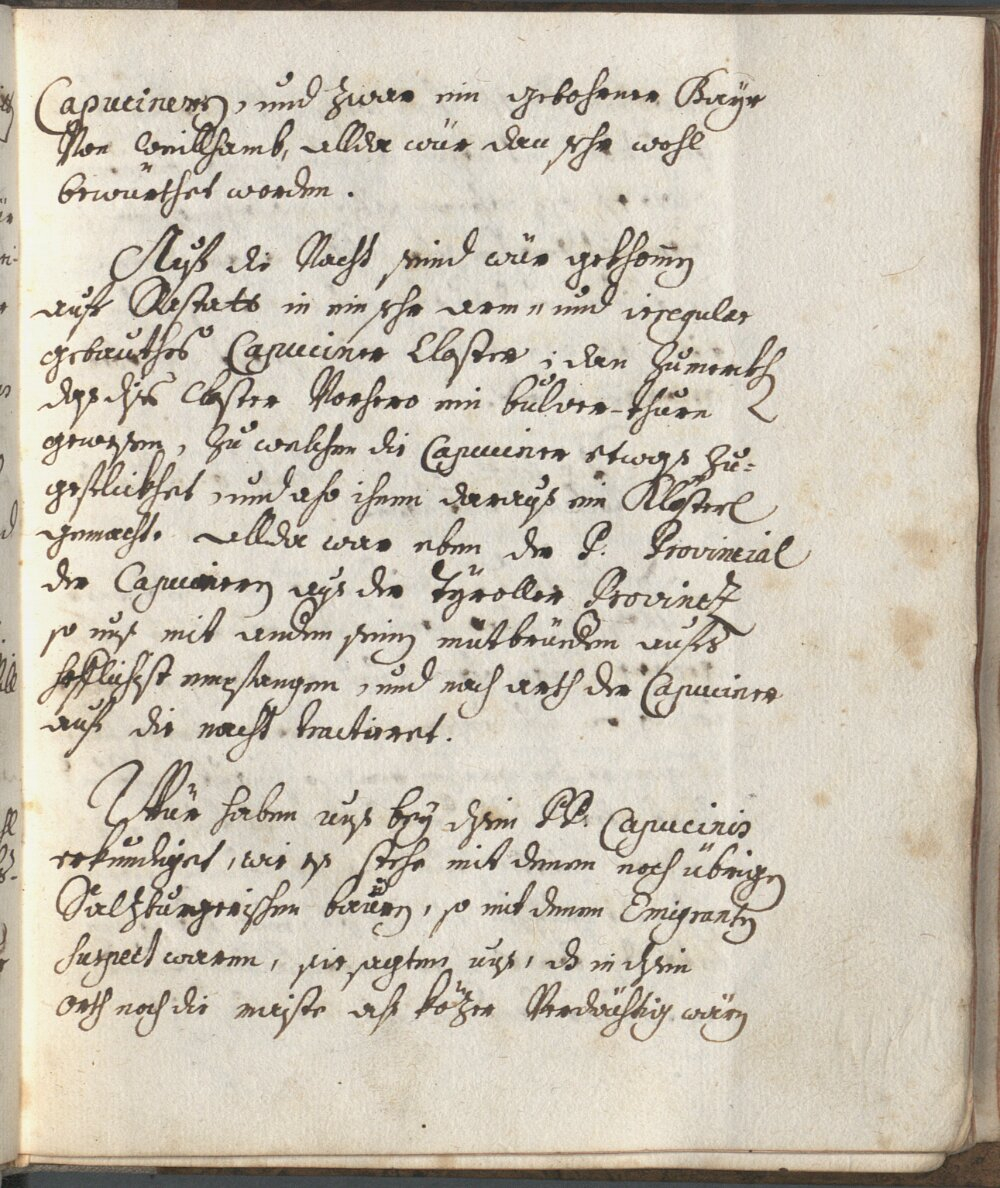 Capucinern, und zwar ein gebohrner Bayr
Von Weillhamb, allda wür dan sehr wohl
bewürthet worden.
Auf die Nacht seind wür gekhomen
auf Rastatt in ein sehr arm und irregular
gebauthes Capuciner Closter; dan zumerkh
das dises Closter Vorhero ein bulver-thurn
gewesen, zu welchen die Capuciner etwas zu-
geflickhet, und also ihnen daraus ein Klösterl
gemacht. allda war eben der P. Provincial
der Capucinern aus der Tyroller Provinz
so uns mit andern seinen mitbrüedern aufs
höfflichist empfangen, und nach arth der Capuciner
auf die nacht tractieret.
Wür haben uns bey disen PP. Capucinis
erkundiget, wie es stehe mit denen noch übrigen
Salzburgerischen bauren, so mit denen Emigranten
suspect waren, sie sagten uns, das in disem
orth noch die maiste als kötzer Verdächtig wären